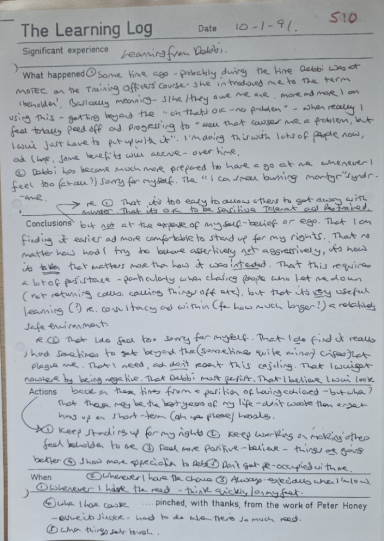 510
The Learning Log Date 10-1-91.
Significant experience Learning from Debbi.
What happened ① Some time ago - probably during the time Debbi was at
MOTEC on the Training Officers course - she introduced me to the term
'beholden'. Basically meaning - s/he/they owe me one. More and more I am
using this - getting beyond the "oh that's OK - no problem" - when really I
feel totally peed off and progressing to - "well that causes me a problem, but
I will just have to put up with it". I'm doing this with lots of people now,
and I hope, some benefits will accrue - over time.
② Debbi has become much more prepared to have a go at me whenever I
feel too (at all?) sorry for myself. The "I can smell burning martyr" syndr-
ome.
→ re ① That it's too easy to allow others to get away with
murder. That it's OK to be sensitive, tolerant and
Conclusions but not at the expense of my self-belief or ego. That I am
finding it easier and more comfortable to stand up for my rights. That no
matter how hard I try to behave assertively not aggressively, it's how
it is taken that matters more than how it was intended. That this requires
a lot of persistence - particularly when chasing people who let me down
(not returning calls, calling things off etc), but that it's very useful
learning (?) re. consultancy and within (for how much longer?) a relatively
safe environment.
re ② That I do feel too sorry for myself. That I do find it really
hard sometimes to get beyond the (sometimes quite minor) crises that
plague me. That I need, and don't resent this cajoling. That I will get
nowhere by being negative. That Debbi must persist. That I believe I will look
Actions back on these times from a position of having achieved - but what?
That these may be the best years of my life - don't waste them by
hung up on short-term (oh yes please) hassles.
① Keep standing up for my rights ② Keep working on making others
feel beholden to me ③ Feel more positive - believe - things are going
better ④ Show more appreciation to Debbi ⑤ Don't get pre-occupied with me.
When ② Whenever I have the chance ③ Always - especially when I'm low.
① Whenever I have the need - think quickly on my feet.
④ When I have cause
pinched, with thanks, from the work of Peter Honey
- make it sincere - hard to do when there's so much need.
⑤ When things get tough.